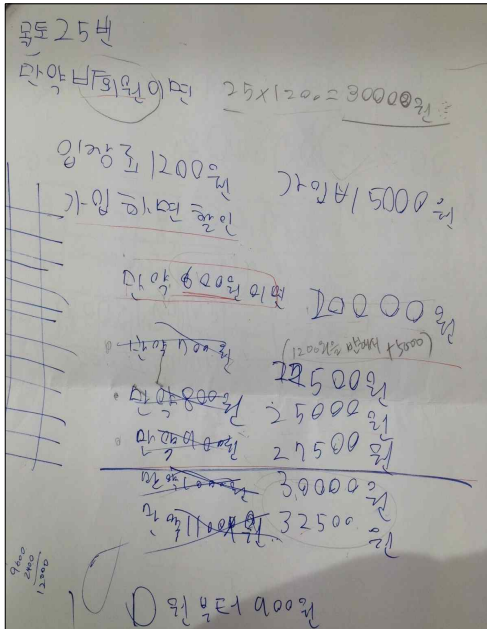 목표 25번
만약 비회원이면 25x1200=30000원
입장료 1200원
가입시 5000원
가입 후 면 할인
만약 600원이면 20000원
(1200원을 +5000)
만약 700원 22500원
만약 800원 25000원
만약 900원 27500원
만약 1000원 30000원
만약 1100원 32500원
9600
2400
12000
원부터 900원